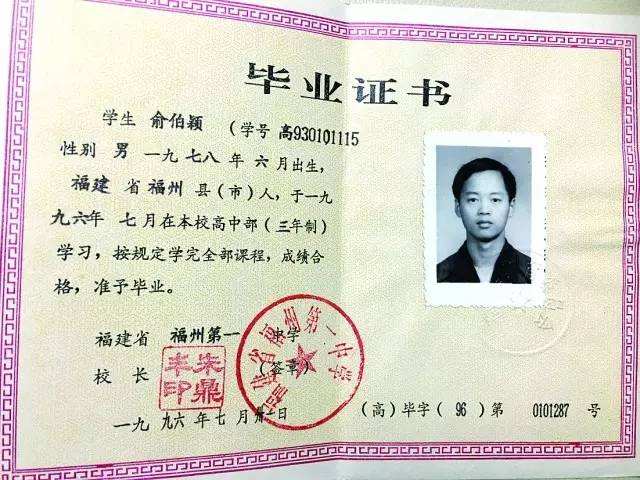 毕业证书
学生 俞伯颖 (学号 高930101115
性别 男 一九七八 年 六 月出生,
福建 省 福州 县(市)人, 于一九
九六年 七 月在本校高中部(三年制)
学习, 按规定学完全部课程, 成绩合
格, 准予毕业。
福建省 福州第一 中学
校 长 (签章)
朱鼎丰印
福建省福州第一中学
一九 九六 年 七 月 卅一日
(高)毕字( 96 )第 0101287 号